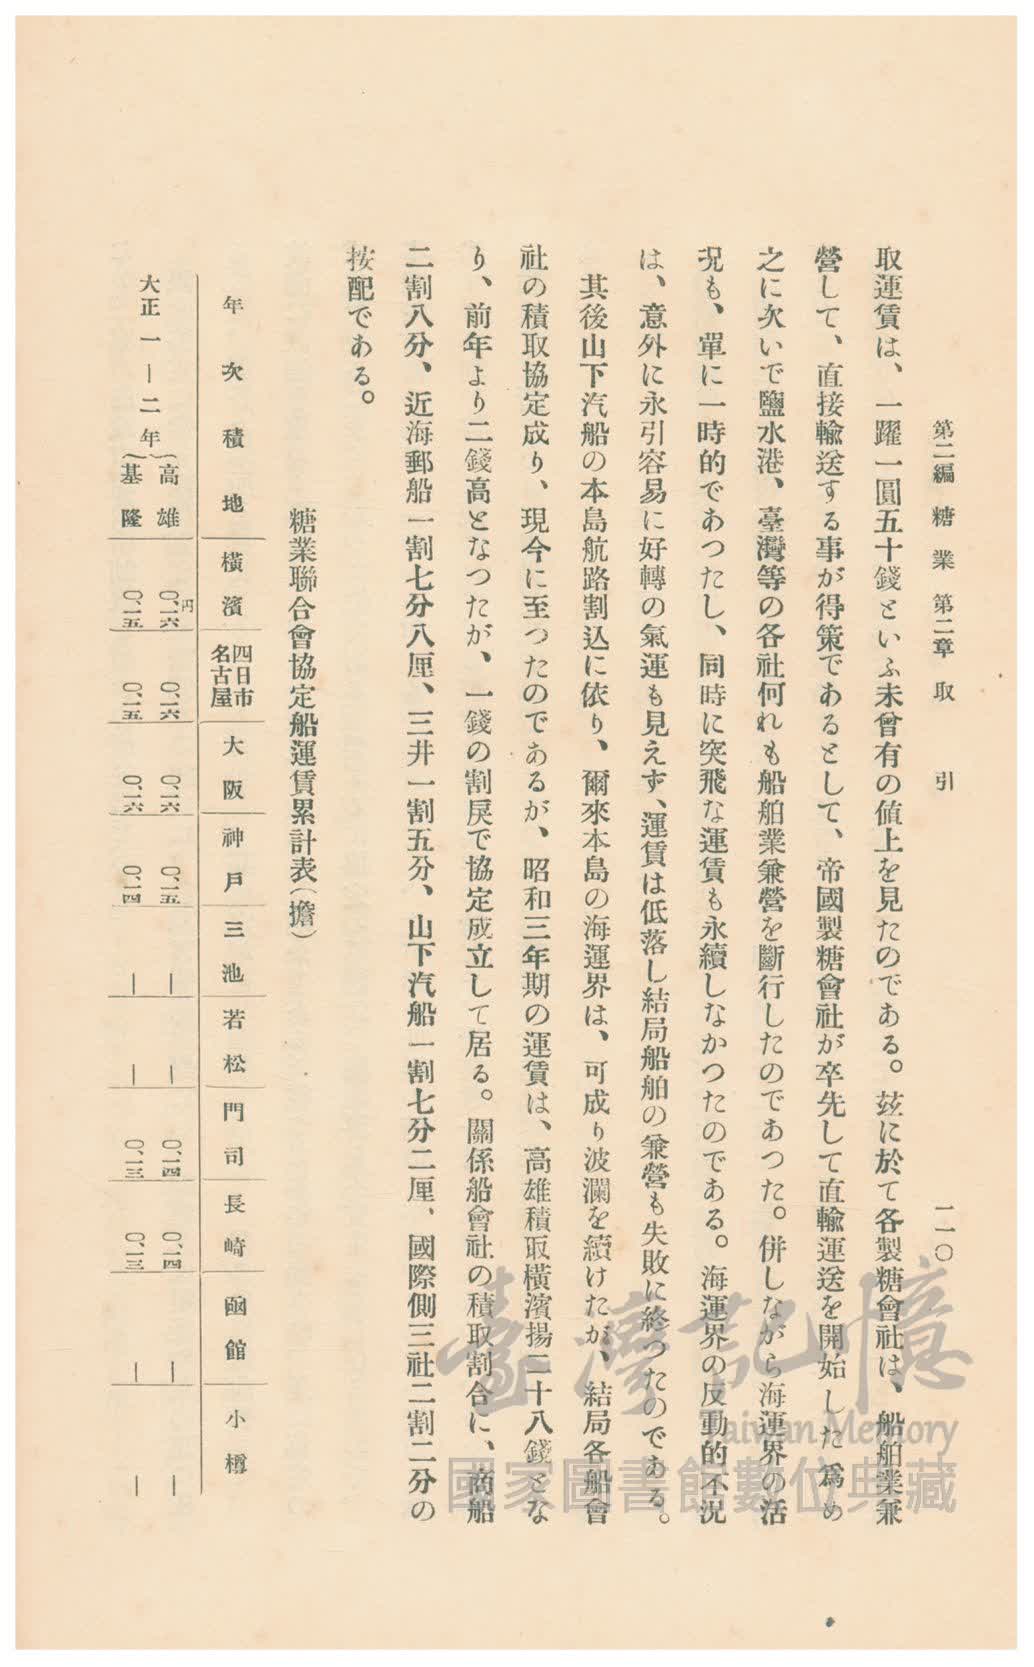 第二編 糖業 第二章 取引 一一〇
取運賃は、一躍一圓五十錢といふ未曾有の値上を見たのである。玆に於て各製糖會社は、船舶業兼
營して、直接輸送する事が得策であるとして、帝國製糖會社が卒先して直輸運送を開始した爲め
之に次いで鹽水港、臺灣等の各社何れも船舶業兼營を斷行したのであつた。併しながら海運界の活
況も、單に一時的であつたし、同時に突飛な運賃も永續しなかつたのである。海運界の反動的不況
は、意外に永引容易に好轉の氣運も見えず、運賃は低落し結局船舶の兼營も失敗に終つたのである。
其後山下汽船の本島航路割込に依り、爾來本島の海運界は、可成り波瀾を續けたが、結局各船會
社の積取協定成り、現今に至つたのであるが、昭和三年期の運賃は、高雄積取橫濱揚二十八錢とな
り、前年より二錢高となつたが、一錢の割戻で協定成立して居る。關係船會社の積取割合に、商船
二割八分、近海郵船一割七分八厘、三井一割五分、山下汽船一割七分二厘、國際側三社二割二分の
按配である。
糖業聯合會協定船運賃累計表(擔)
年次 積地 橫濱 四日市名古屋 大阪 神戶 三池 若松 門司 長崎 凾館 小樽
大正一—二年 高雄 円〇、一六 〇、一六 〇、一六 〇、一五 — — 〇、一四 〇、一四 — —
基隆 〇、一五 〇、一五 〇、一六 〇、一四 — — 〇、一三 〇、一三 — —
臺灣記憶
Taiwan Memory
國家圖書館數位典藏